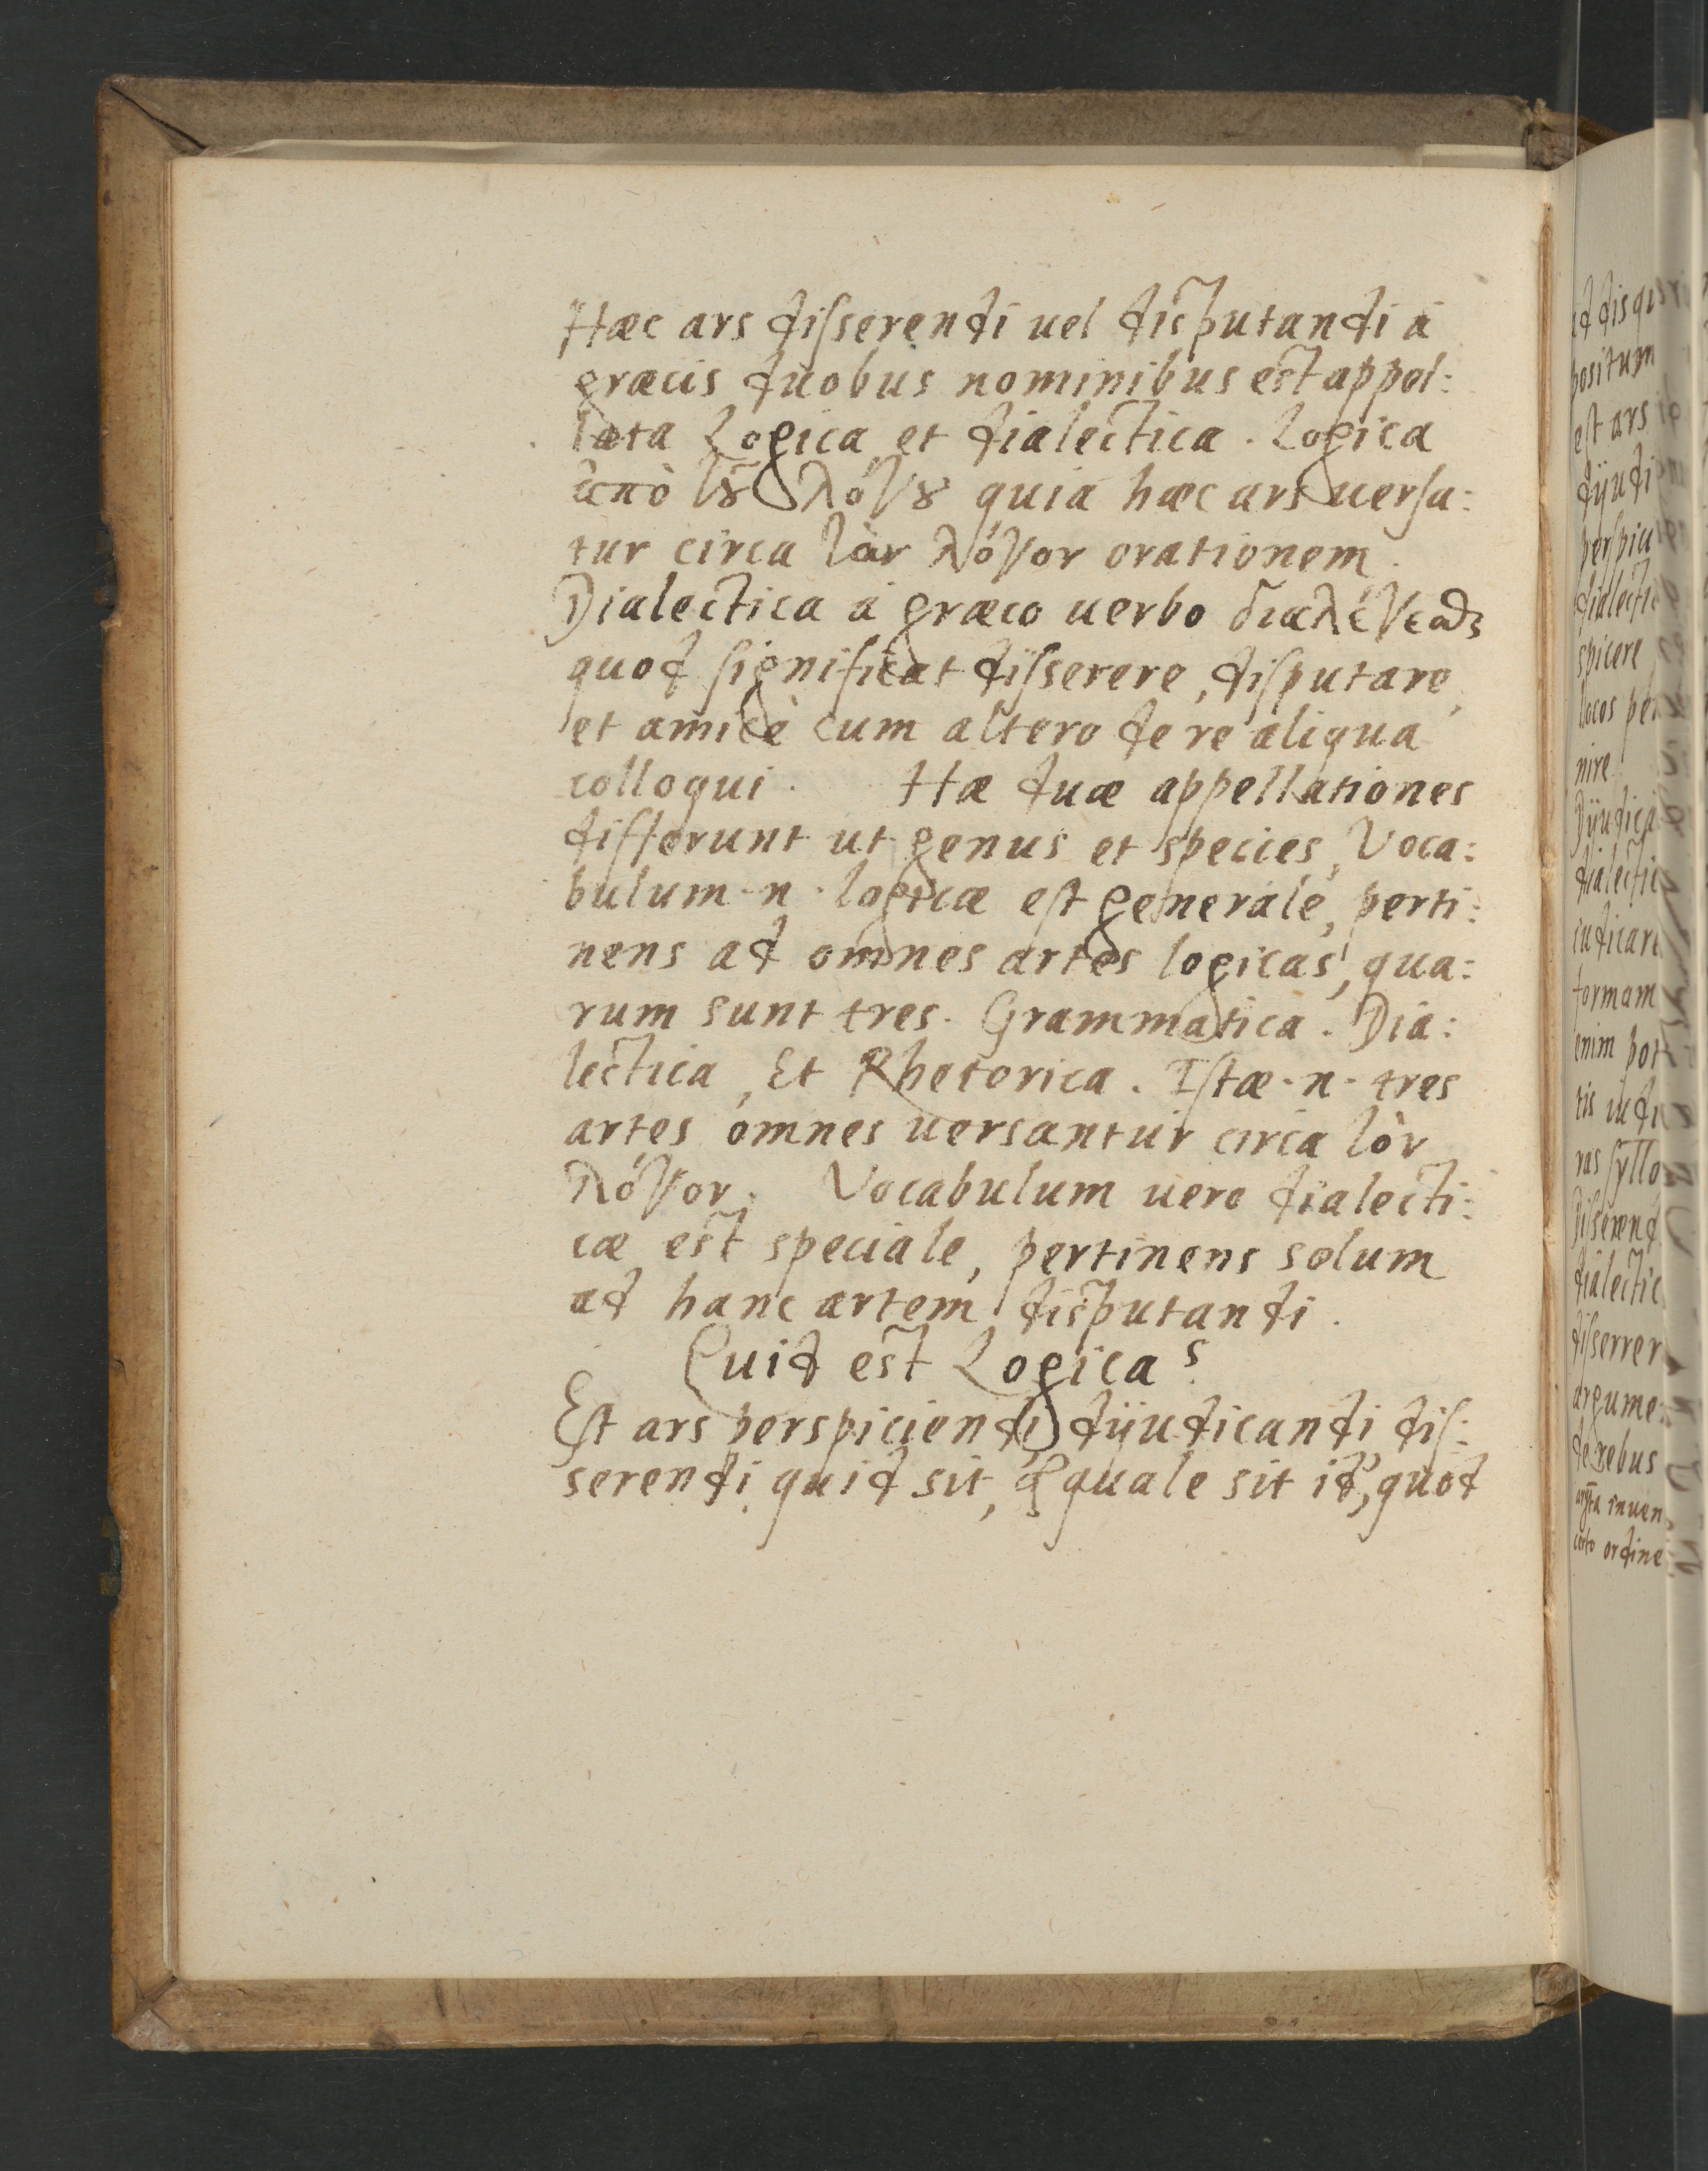 Hæc ars diſserendi uel disputandi á
græcis duobus nominibus est appel:
lata Logica et dialectica . Logica
ἀπὸ τȣ͂ λόγȣ quia hæc ars uerſa:
tur circa τὸν λόγον orationem .
Dialectica á græco uerbo διαλέγεσθαι
quod ſignificat diſserere, diſputare,
et amicè cum altero de re aliqua
colloqui . Hæ duæ appellationes
differunt ut genus et species, Voca:
bulum · n · logicæ eſt generale, perti:
nens ad omnes artes logicas, qua:
rum sunt tres. Grammatica . Dia:
lectica, Et Rhetorica . Iſtæ · n · tres
artes omnes uersantur circa τὸν
λόγον . Vocabulum uero dialecti:
cæ est speciale, pertinens solum
ad hanc artem disputandi .
Quid est Logica?
Eſt ars perspiciendi dijudicandi diſ:
serendi quid sit, & quale sit id, quod
id disqu
positum
eſt ars
dijudi
perſpic
dialecti
spicere
locos per
nire
Dijudica
dialecti
iudicare
formam
enim
tis iudi
ras ſyllo
Diſserend
dialectic
diſserrer
argume
de rebus
inuen
certo ordine